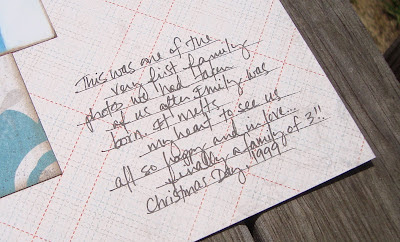 This was one of the
very first family
photos we had taken
of us after Emily was
born. It melts
my heart to see us
all so happy and in love...
finally a family of 3!!
Christmas Day, 1999